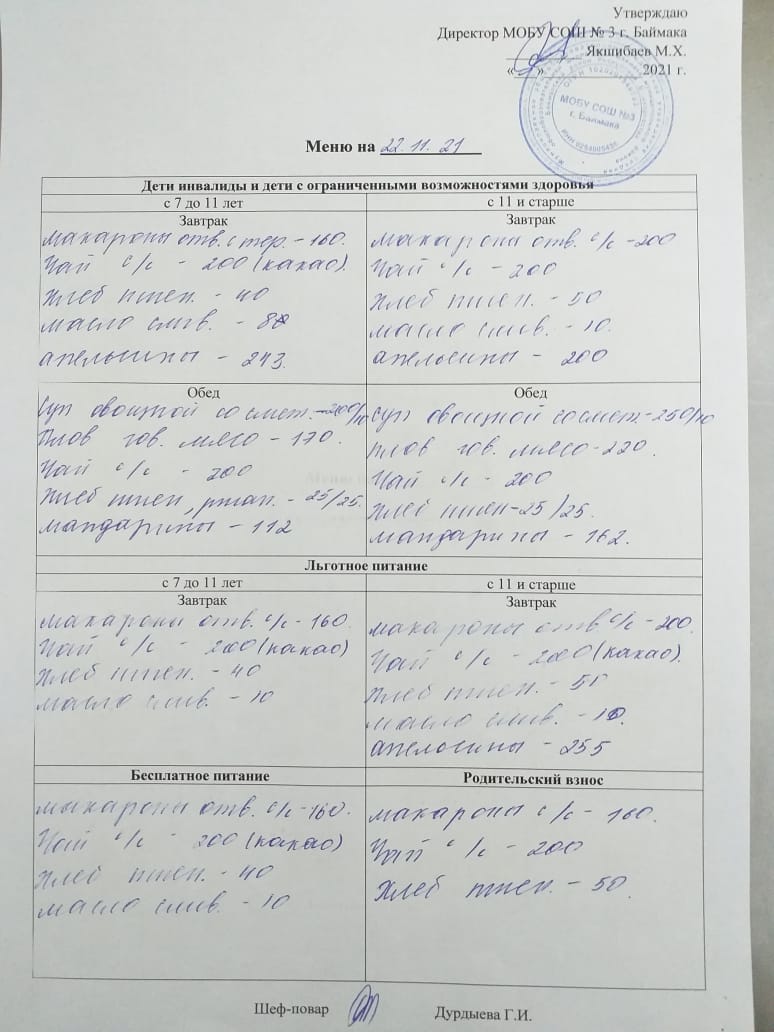 Утверждаю
Директор МОБУ СОШ № 3 г. Баймака
Якшибаев М.Х.
« » 2021 г.
МОБУ СОШ №3
г. Баймака
Меню на 22.11.21
Дети инвалиды и дети с ограниченными возможностями здоровья
с 7 до 11 лет
Завтрак
макароны отв. с тер. - 160.
Чай с/с - 200 (какао).
Хлеб пшен. - 40
масло слив. -
апельсины - 243.
с 11 и старше
Завтрак
макароны отв. с/с - 200
Чай с/с - 200
Хлеб пшен. - 50
масло слив. - 10.
апельсины - 200
Обед
Суп овощной со смет. - 200/10
Плов гов. мясо - 170.
Чай с/с - 200
Хлеб пшен, ржан. - 25/25.
мандарины - 112
Обед
Суп овощной со смет. - 250/10
плов гов. мясо - 220.
Чай с/с - 200
Хлеб пшен - 25/25.
мандарины - 162.
Льготное питание
с 7 до 11 лет
Завтрак
макароны отв. с/с - 160.
Чай с/с - 200 (какао)
Хлеб пшен. - 40
масло слив. - 10
с 11 и старше
Завтрак
макароны отв. с/с - 200.
Чай с/с - 200 (какао).
Хлеб пшен. - 50
масло слив. - 10.
апельсины - 255
Бесплатное питание
макароны отв. с/с - 160.
Чай с/с - 200 (какао)
Хлеб пшен. - 40
масло слив. - 10
Родительский взнос
макароны с/с - 160.
Чай с/с - 200
Хлеб пшен. - 50.
Шеф-повар Дурдыева Г.И.